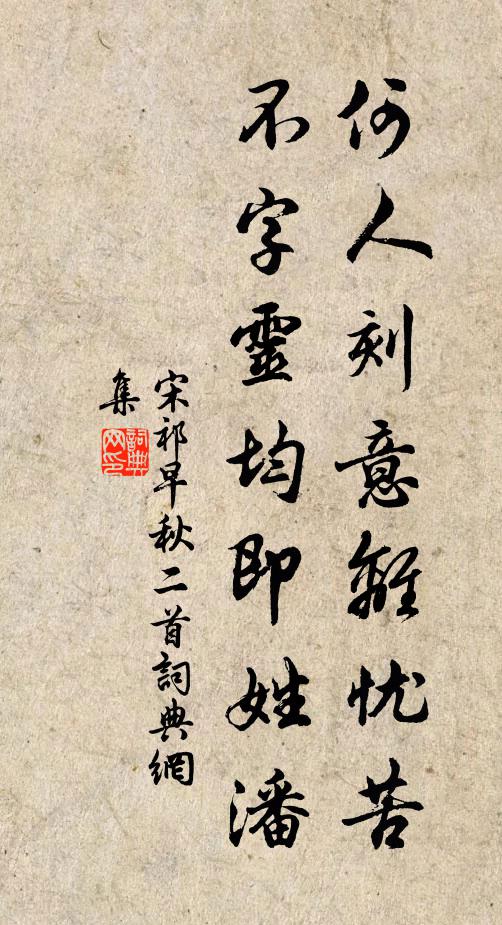 何人刻意離忧苦
不字靈均即姓潘
宋祁早秋二首詞典網
集
詞典网印